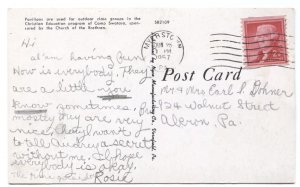 Pavilions are used for outdoor class groups in the
Christian Education program of Camp Swatara, spon-
sored by the Church of the Brethren.
582109
Hi
I am having fun
How is everybody. They
are a little
know sometimes, but
mostly they are very
nice. I want
to tell Audrey a secret
without me. I hope
everybody is okay.
Rosie
1957
Post Card
Mr & Mrs Carl L. Gohner
124 Walnut Street
Akron, Pa.